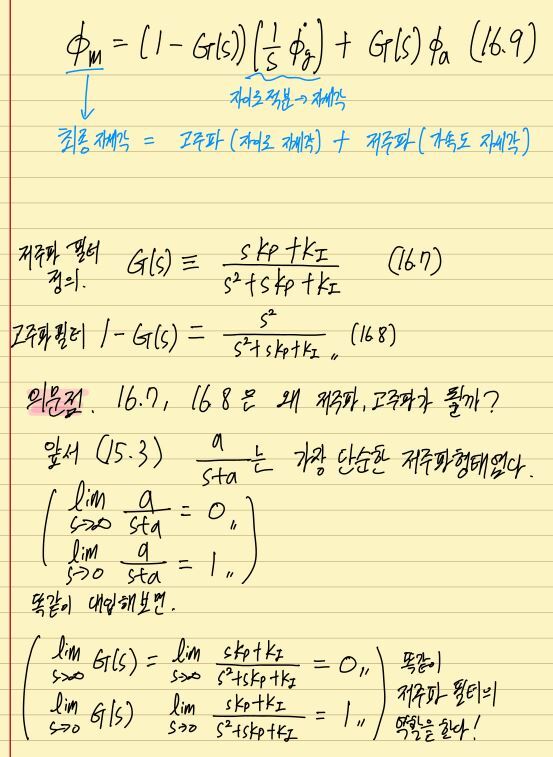 ϕm = (1 - G(s))(1/s ϕ̇g) + G(s)ϕa (16.9)
자이로적분→자세각
최종자세각 = 고주파(자이로 자세각) + 저주파(가속도 자세각)
저주파 필터 정의. G(s) ≡ (skp + kI)/(s² + skp + kI) (16.7)
고주파필터 1 - G(s) = s²/(s² + skp + kI) 〃 (16.8)
의문점. 16.7, 16.8은 왜 저주파, 고주파가 될까?
앞서 (15.3) a/(s+a)는 가장 단순한 저주파형태였다.
lim s→∞ a/(s+a) = 0〃
lim s→0 a/(s+a) = 1〃
똑같이 대입해보면.
lim s→∞ G(s) = lim s→∞ (skp + kI)/(s² + skp + kI) = 0〃
lim s→0 G(s) lim s→0 (skp + kI)/(s² + skp + kI) = 1〃
똑같이
저주파 필터의
역할을 한다!